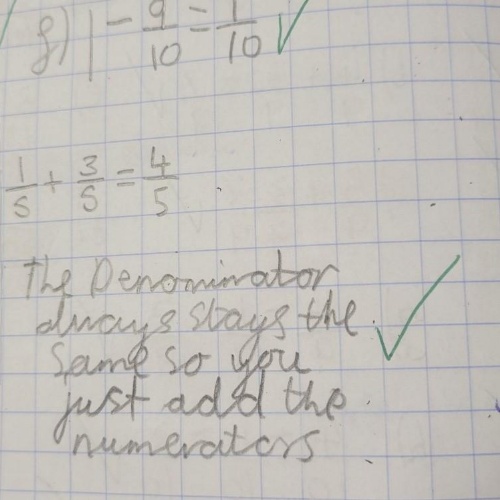 g) 1 - 9/10 = 1/10
1/5 + 3/5 = 4/5
The Denominator
always stays the
same so you
just add the
numerators